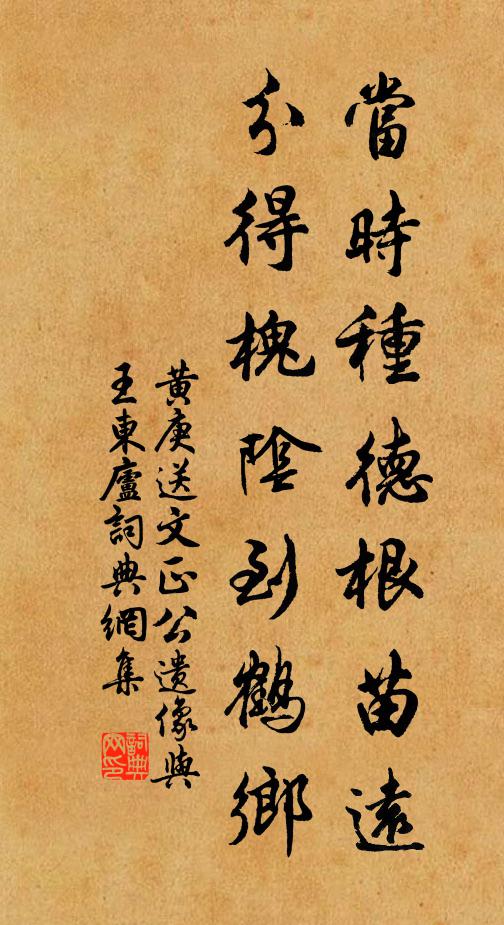 當時種德根苗遠
分得槐陰到鶴鄉
黃庚送文正公遺像與
王東廬詞典網集
詞典網印